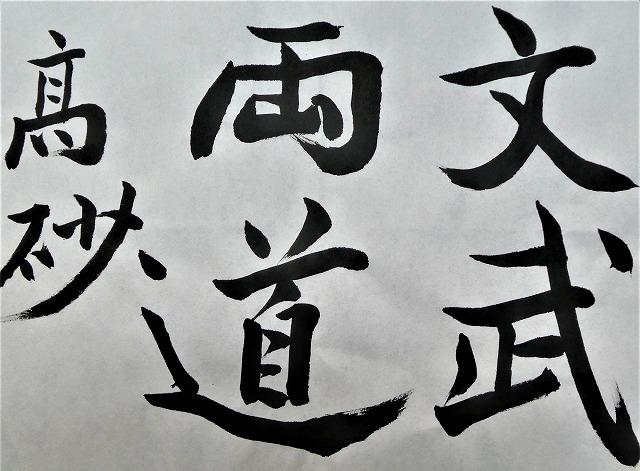 文武
両道
髙砂